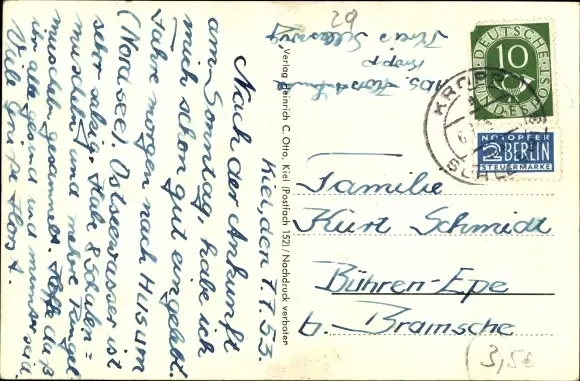 29
Kiel, den 7.7.53.
Nach der Ankunft
am Sonntag, habe ich
mich schon gut eingelebt.
Fahre morgen nach Husum
(Nordsee). Ostseewasser ist
sehr salzig. Habe 8 Schalen=
muscheln und mehrere Ringel
muscheln gesammelt. Hoffe daß
ihr alle gesund und munter seid.
Viele Grüße Horst.
Verlag Heinrich C. Otto, Kiel (Postfach 152) / Nachdruck verboten
Kreis Schleswig
Kropp
DEUTSCHE
10
BUNDESPOST
KROPP
NOTOPFER
2 BERLIN
STEUERMARKE
Familie
Kurt Schmidt
Bühren-Epe
b. Bramsche
3,50